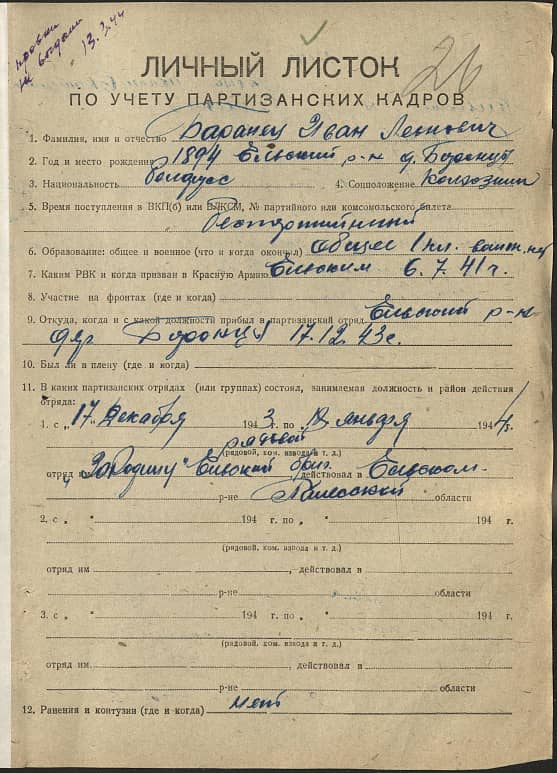 13.3.44
26
ЛИЧНЫЙ ЛИСТОК
ПО УЧЕТУ ПАРТИЗАНСКИХ КАДРОВ
1. Фамилия, имя и отчество Баранец Иван Леонович
2. Год и место рождения 1894 Ельский р-н д.
3. Национальность белорус 4. Соцположение Колхозник
5. Время поступления в ВКП(б) или ВЛКСМ, № партийного или комсомольского билета
Беспартийный
6. Образование: общее и военное (что и когда окончил) общее 1 кл.
7. Каким РВК и когда призван в Красную Армию Ельским 6.7.41 г.
8. Участие на фронтах (где и когда)
9. Откуда, когда и с какой должности прибыл в партизанский отряд Ельский р-н
дер. 17.12.43 г.
10. Был ли в плену (где и когда)
11. В каких партизанских отрядах (или группах) состоял, занимаемая должность и район действия
отряда:
1. с „17" декабря 1943 г. по „ января 1944 г.
рядовой
(рядовой, ком. взвода и т. д.)
отряд им „За Родину" Ельский бриг. действовал в Ельском
р-не Полесской области
2. с „ " 194 г. по „ " 194 г.
(рядовой, ком. взвода и т. д.)
отряд им , действовал в
р-не области
3. с „ " 194 г. по „ " 194 г.
(рядовой, ком. взвода и т. д.)
отряд им , действовал в
р-не области
12. Ранения и контузии (где и когда) нет